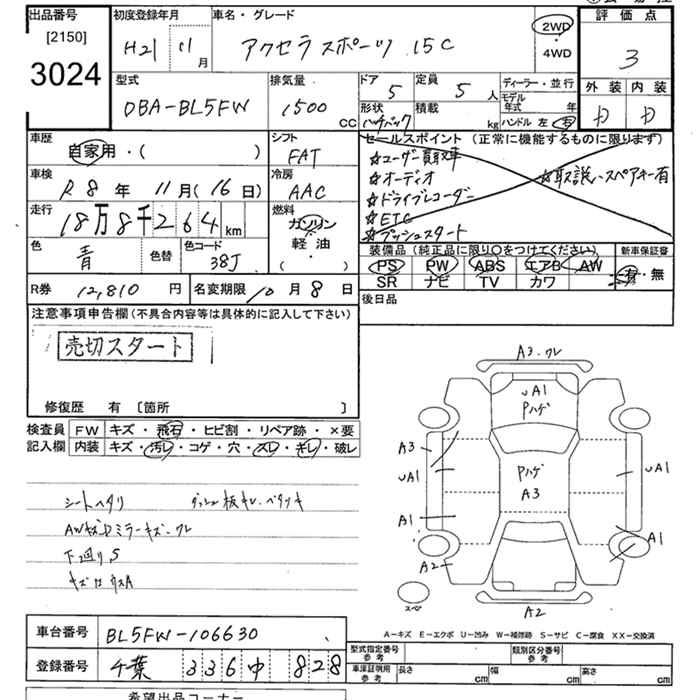 出品番号 初度登録年月 車名・グレード 評価点
[2150]
3024
H21 11月 アクセラスポーツ 15C 2WD
・
4WD
3
型式 排気量 ドア 定員 ディーラー・並行 外装 内装
DBA-BL5FW 1500 CC 5 5人 モデル年式 年
形状 積載 kg ハンドル 左 右
ハッチバック
D D
車歴 シフト セールスポイント (正常に機能するものに限ります)
自家用・( ) FAT
☆ユーザー買取車
☆オーディオ ☆取説、スペアキー有
☆ドライブレコーダー
☆ETC
☆プッシュスタート
車検 冷房
R8年 11月(16日) AAC
走行 燃料
18万8千264km ガソリン
軽油
( )
色 色替 色コード
青 38J
装備品 (純正品に限り○をつけてください) 新車保証書
PS PW ABS エアB AW 有・無
SR ナビ TV カワ
R券 12,810円 名変期限 10月8日
後日品
注意事項申告欄(不具合内容等は具体的に記入して下さい)
売切スタート
修復歴 有 〔箇所 〕
検査員 FW キズ・飛石・ヒビ割・リペア跡・×要
記入欄 内装 キズ・汚レ・コゲ・穴・スレ・キレ・破レ
シートヘタリ ダッシュ板キレ・ベタツキ
AWキズDミラーキズ・ワレ
下廻りS
A3・ワレ
UA1
Pハゲ
A3
UA1
Pハゲ
A3
UA1
A1
A1
A2
スペア
A2
A-キズ E-エクボ U-凹み W-補修跡 S-サビ C-腐食 XX-交換済
車台番号 BL5FW-106630
登録番号 千葉 336 中 828
型式指定番号 参考 類別区分番号 参考
車庫証明用 参考 長さ cm 幅 cm 高さ cm
希望出品コーナー